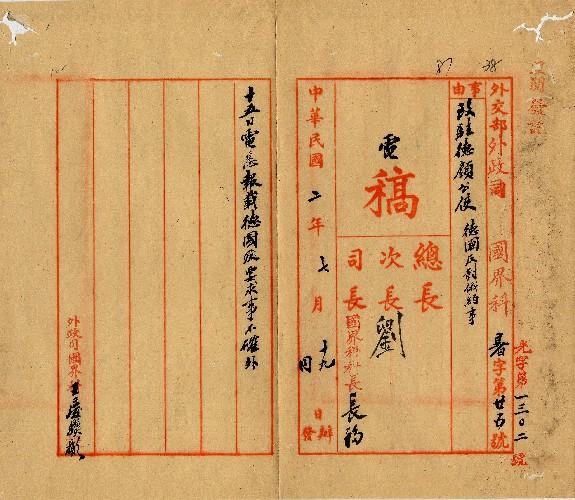 光字第一三〇二號
外交部外政司 國界科 暑字第廿五號
事由
致駐德顏公使 德國反對俄約事
電
稿
總長
次長 劉
司長
國界科科長 長福
中華民國二年七月十九日辦
同日發
十五日電悉報載德國反要求事不確外
外政司國界科